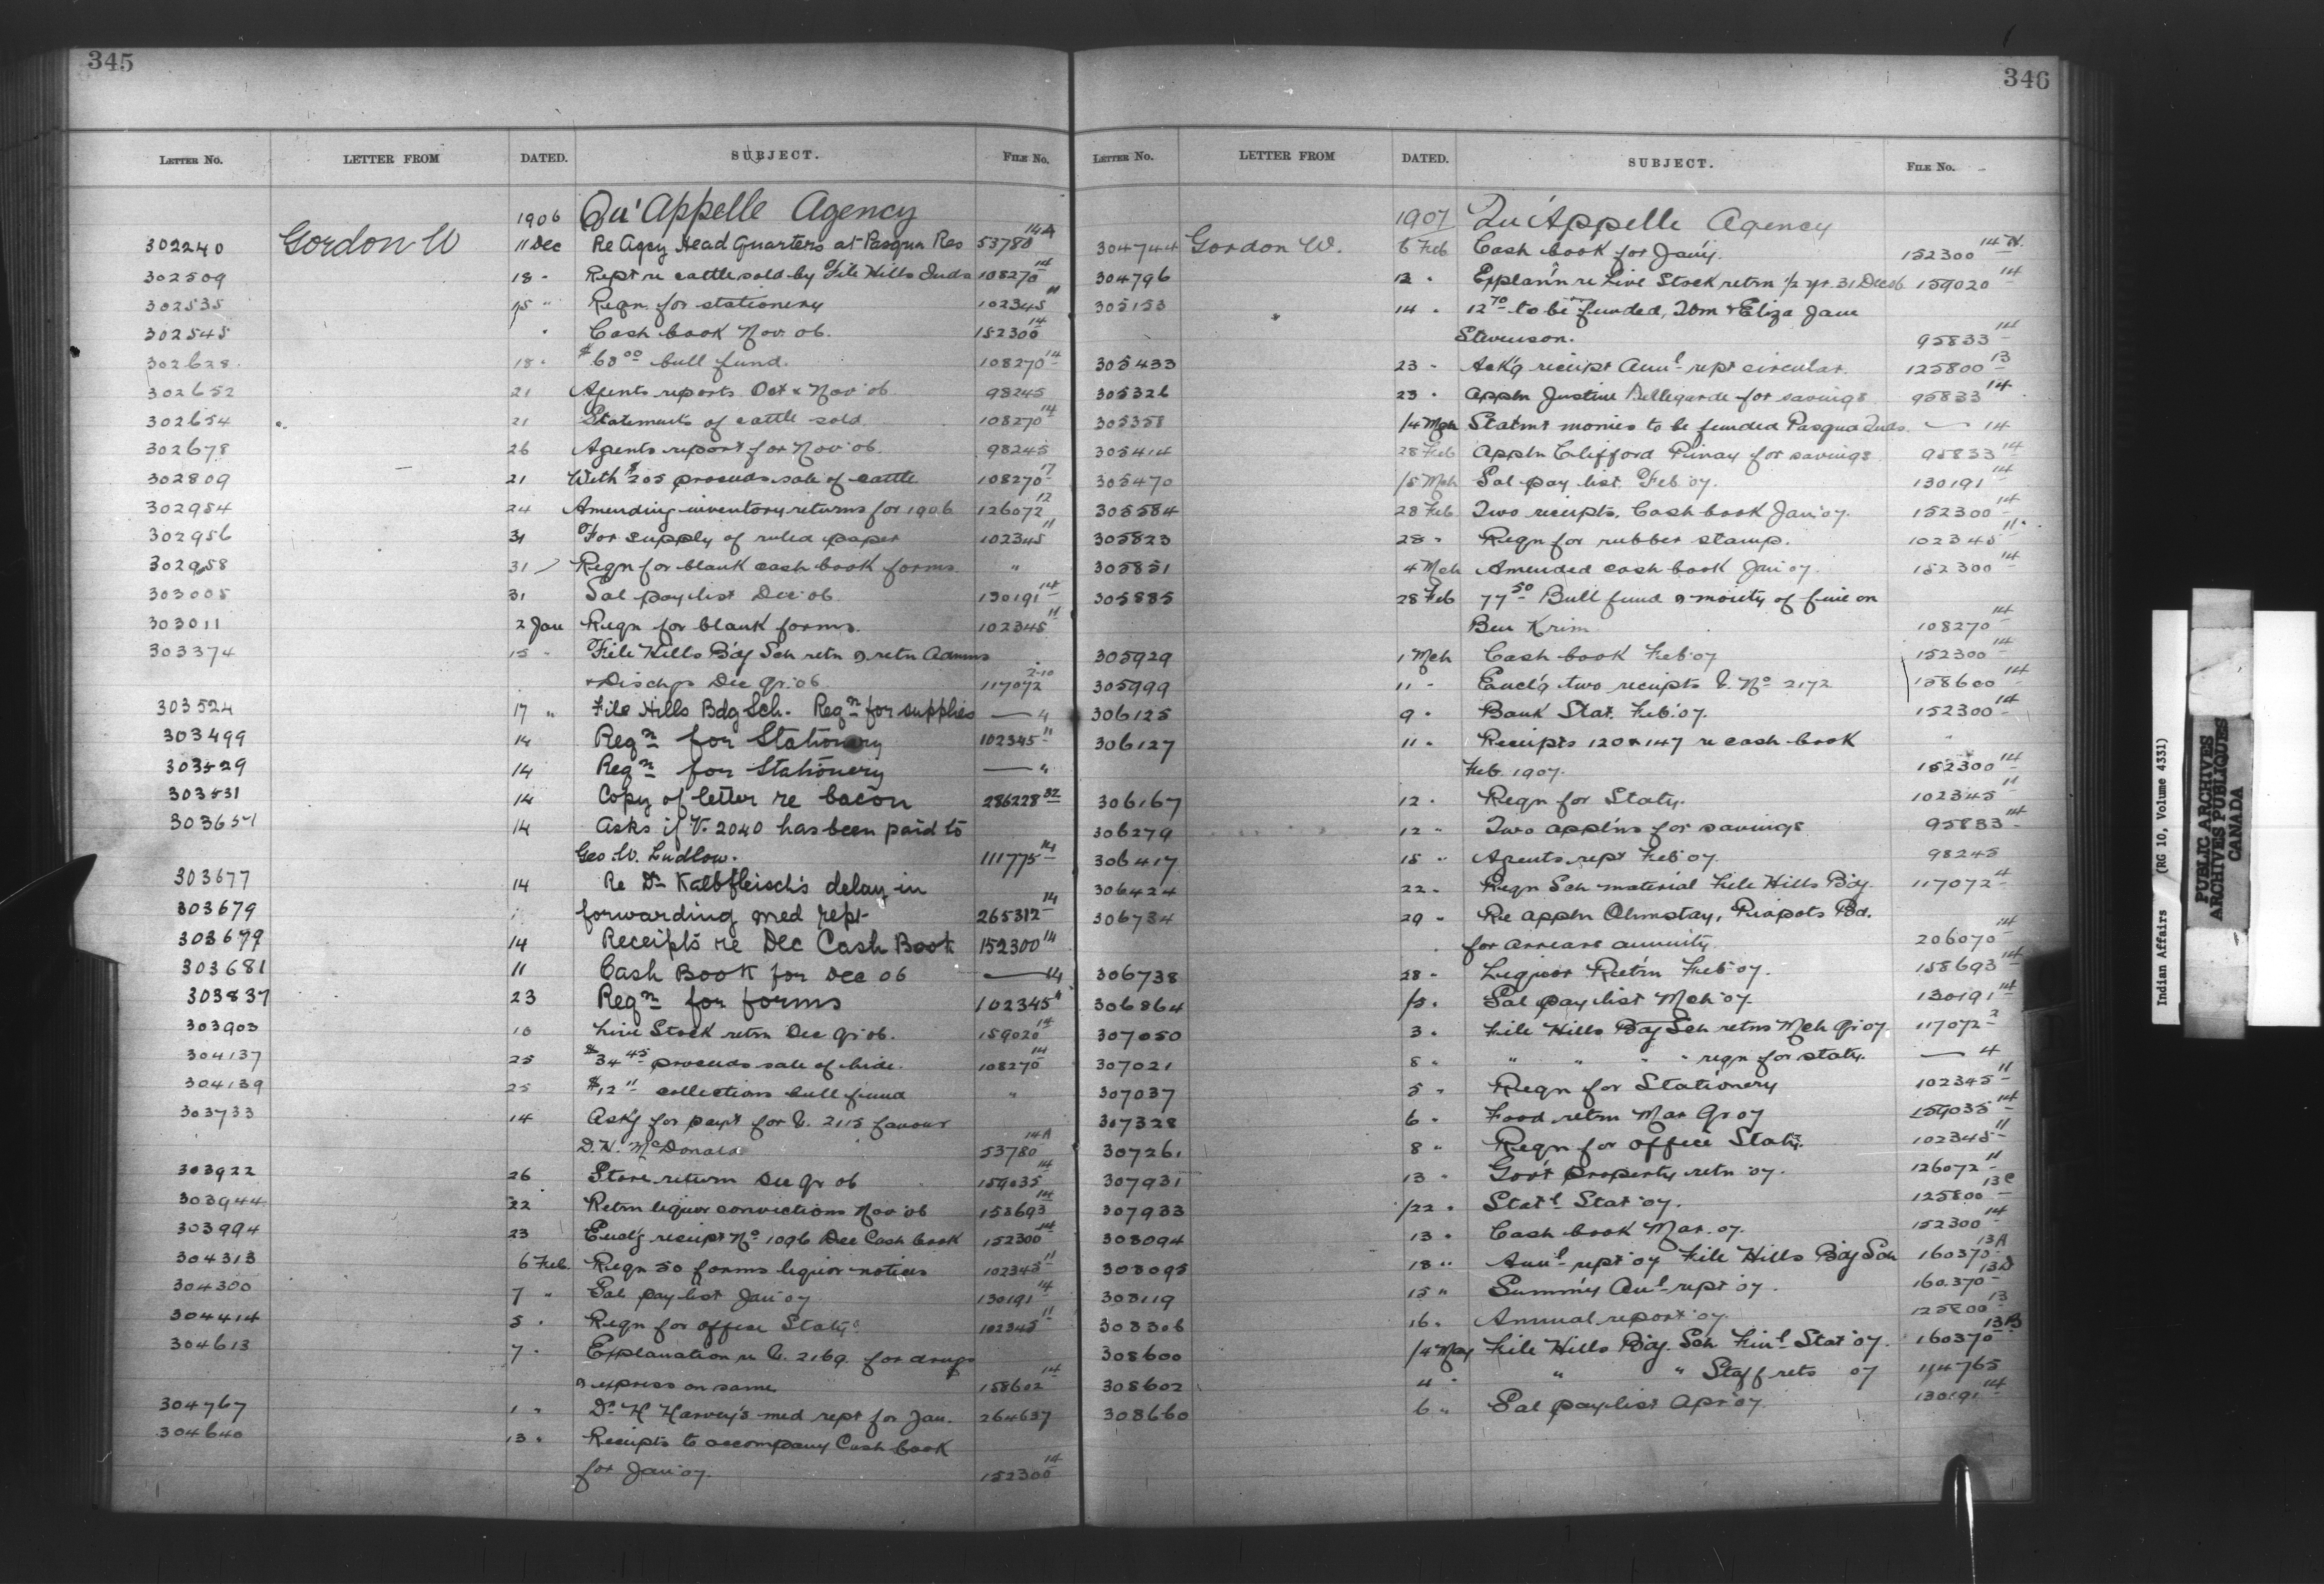 345
LETTER NO. LETTER FROM DATED. SUBJECT. FILE NO.
1906 Qu'Appelle Agency
302240 Gordon W 11 Dec Re Agcy Head Quarters at Pasqua Res 53780 14A
302509 18 " Rept re cattle sold by File Hills Inds 108270 14
302535 15 " Reqn for stationery 102345 11
302545 " Cash book Nov. 06. 152300 14
302628 18 " $60 00 bull fund. 108270 14
302652 21 Agents reports Oct & Nov '06 98245
302654 21 Statements of cattle sold 108270 14
302678 26 Agents report for Nov '06. 98245
302809 21 With $205 proceeds sale of cattle 108270 17
302954 24 Amending inventory returns for 1906 126072 12
302956 31 For supply of ruled paper 102345 11
302958 31 Reqn for blank cash book forms. "
303005 31 Sal paylist Dec '06 130191 14
303011 2 Jan Reqn for blank forms. 102345 11
303374 15 " File Hills B'dg Sch retn & retn Admns
& Dischgs Dec Qr. '06. 117072 2-10
303524 17 " File Hills Bdg Sch. Reqn for supplies — 4
303499 14 Reqn for Stationery 102345 11
303529 14 Reqn for Stationery — "
303531 14 Copy of letter re bacon 286228 32
303651 14 Asks if V. 2040 has been paid to
Geo. W. Ludlow. 111775 14
303677 14 Re Dr Kalbfleisch's delay in
303679 forwarding med rept 265312 14
303679 14 Receipts re Dec Cash Book 152300 14
303681 11 Cash Book for Dec 06 — 14
303837 23 Reqn for forms 102345 11
303903 10 Live Stock retrn Dec Qr 06. 159020 14
304137 25 $34 45 proceeds sale of hide. 108270 14
304139 25 $12 11 collections bull fund "
303733 14 Ask'g for paym't for V. 2115 favour
D.H. McDonald 53780 14A
303922 26 Store return Dec Qr 06 159035 14
303944 22 Retrn liquor convictions Nov '06 158693 14
303994 23 Encl'g receipt No 1096 Dec Cash book 152300 14
304313 6 Feb. Reqn 50 forms liquor notices 102345 11
304300 7 " Sal paylist Jan '07 130191 14
304414 5 " Reqn for office Staty. 102345 11
304613 7 " Explanation re V. 2169. for drugs
& express on same 158602 14
304767 1 " Dr H Harvey's med rept for Jan. 264637
304640 13 " Receipts to accompany Cash book
for Jan '07. 152300 14
346
LETTER NO. LETTER FROM DATED. SUBJECT. FILE NO.
1907 Qu'Appelle Agency
304744 Gordon W. 6 Feb Cash book for Jan'y. 152300 14
304796 12 " Explan'n re Live Stock retrn ½ yr. 31 Dec 06 159020 14
305153 14 " 12 70 to be funded, Tom & Eliza Jane
Stevenson. 95833 14
305433 23 " Ack'g receipt Annl rept circular. 125800 13
305326 23 " Appln Justine Bellegarde for savings 95833 14
305358 1/4 Mch Statmt monies to be funded Pasqua Inds. — 14
305414 28 Feb Appln Clifford Pinay for savings 95833 14
305470 1/5 Mch Sal pay list. Feb '07. 130191 14
305584 28 Feb Two receipts. Cash book Jan '07. 152300 14
305823 28 " Reqn for rubber stamp. 102345 11
305851 4 Mch Amended cash book Jan '07. 152300 14
305885 28 Feb 77 50 Bull fund & moiety of fine on
Ben Krim 108270 14
305929 1 Mch Cash book Feb '07 152300 14
305999 11 " Encl'g two receipts V. No 2172 158600 14
306125 9 " Bank Stat. Feb. '07. 152300 14
306127 11 " Receipts 120 & 147 re cash book "
Feb. 1907. 152300 14
306167 12 " Reqn for Staty. 102345 11
306279 12 " Two applns for savings 95833 14
306417 15 " Agents rept Feb '07. 98245
306424 22 " Reqn Sch material File Hills B'dg. 117072 4
306734 29 " Re appln Ohmstay, Piapots Bd.
for arrears annuity. 206070 14
306738 28 " Liquor Retrn Feb '07. 158693 14
306864 1/3 " Sal paylist Mch '07 130191 14
307050 3 " File Hills B'dg Sch retns Mch Qr 07. 117072 2
307021 8 " " " " " reqn for staty. — 4
307037 5 " Reqn for Stationery 102345 11
307328 6 " Food retrn Mar Qr 07 159035 14
307261 8 " Reqn for office Staty. 102345 11
307931 13 " Gov't property retn '07. 126072 11
307933 1/22 " Statl Stat '07. 125800 13C
308094 13 " Cash book Mar. '07. 152300 14
308095 18 " Annl rept '07 File Hills B'dg Sch 160370 13A
308119 15 " Summ'y Anl rept '07. 160370 13D
308306 16 " Annual report '07. 125800 13
308600 1/4 May File Hills B'dg. Sch Finl Stat '07. 160370 13B
308602 4 " " " Staff rets 07 114765
308660 6 " Sal paylist Apr '07. 130191 14
Indian Affairs (RG 10, Volume 4331)
PUBLIC ARCHIVES
ARCHIVES PUBLIQUES
CANADA